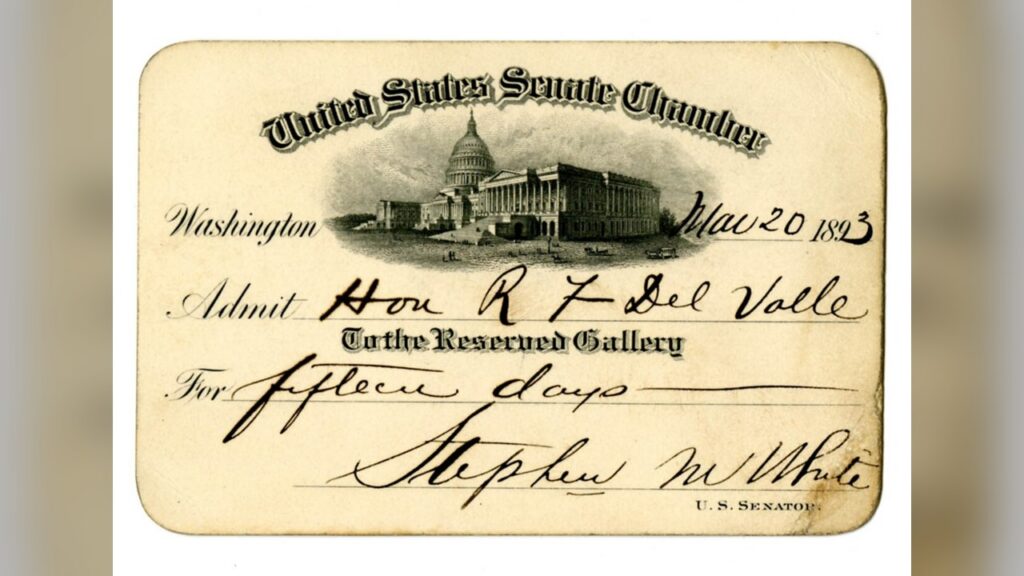 United States Senate Chamber
Washington Mar 20 1893
Admit Hon R F Del Valle
To the Reserved Gallery
For fifteen days
Stephen M White
U. S. SENATOR.